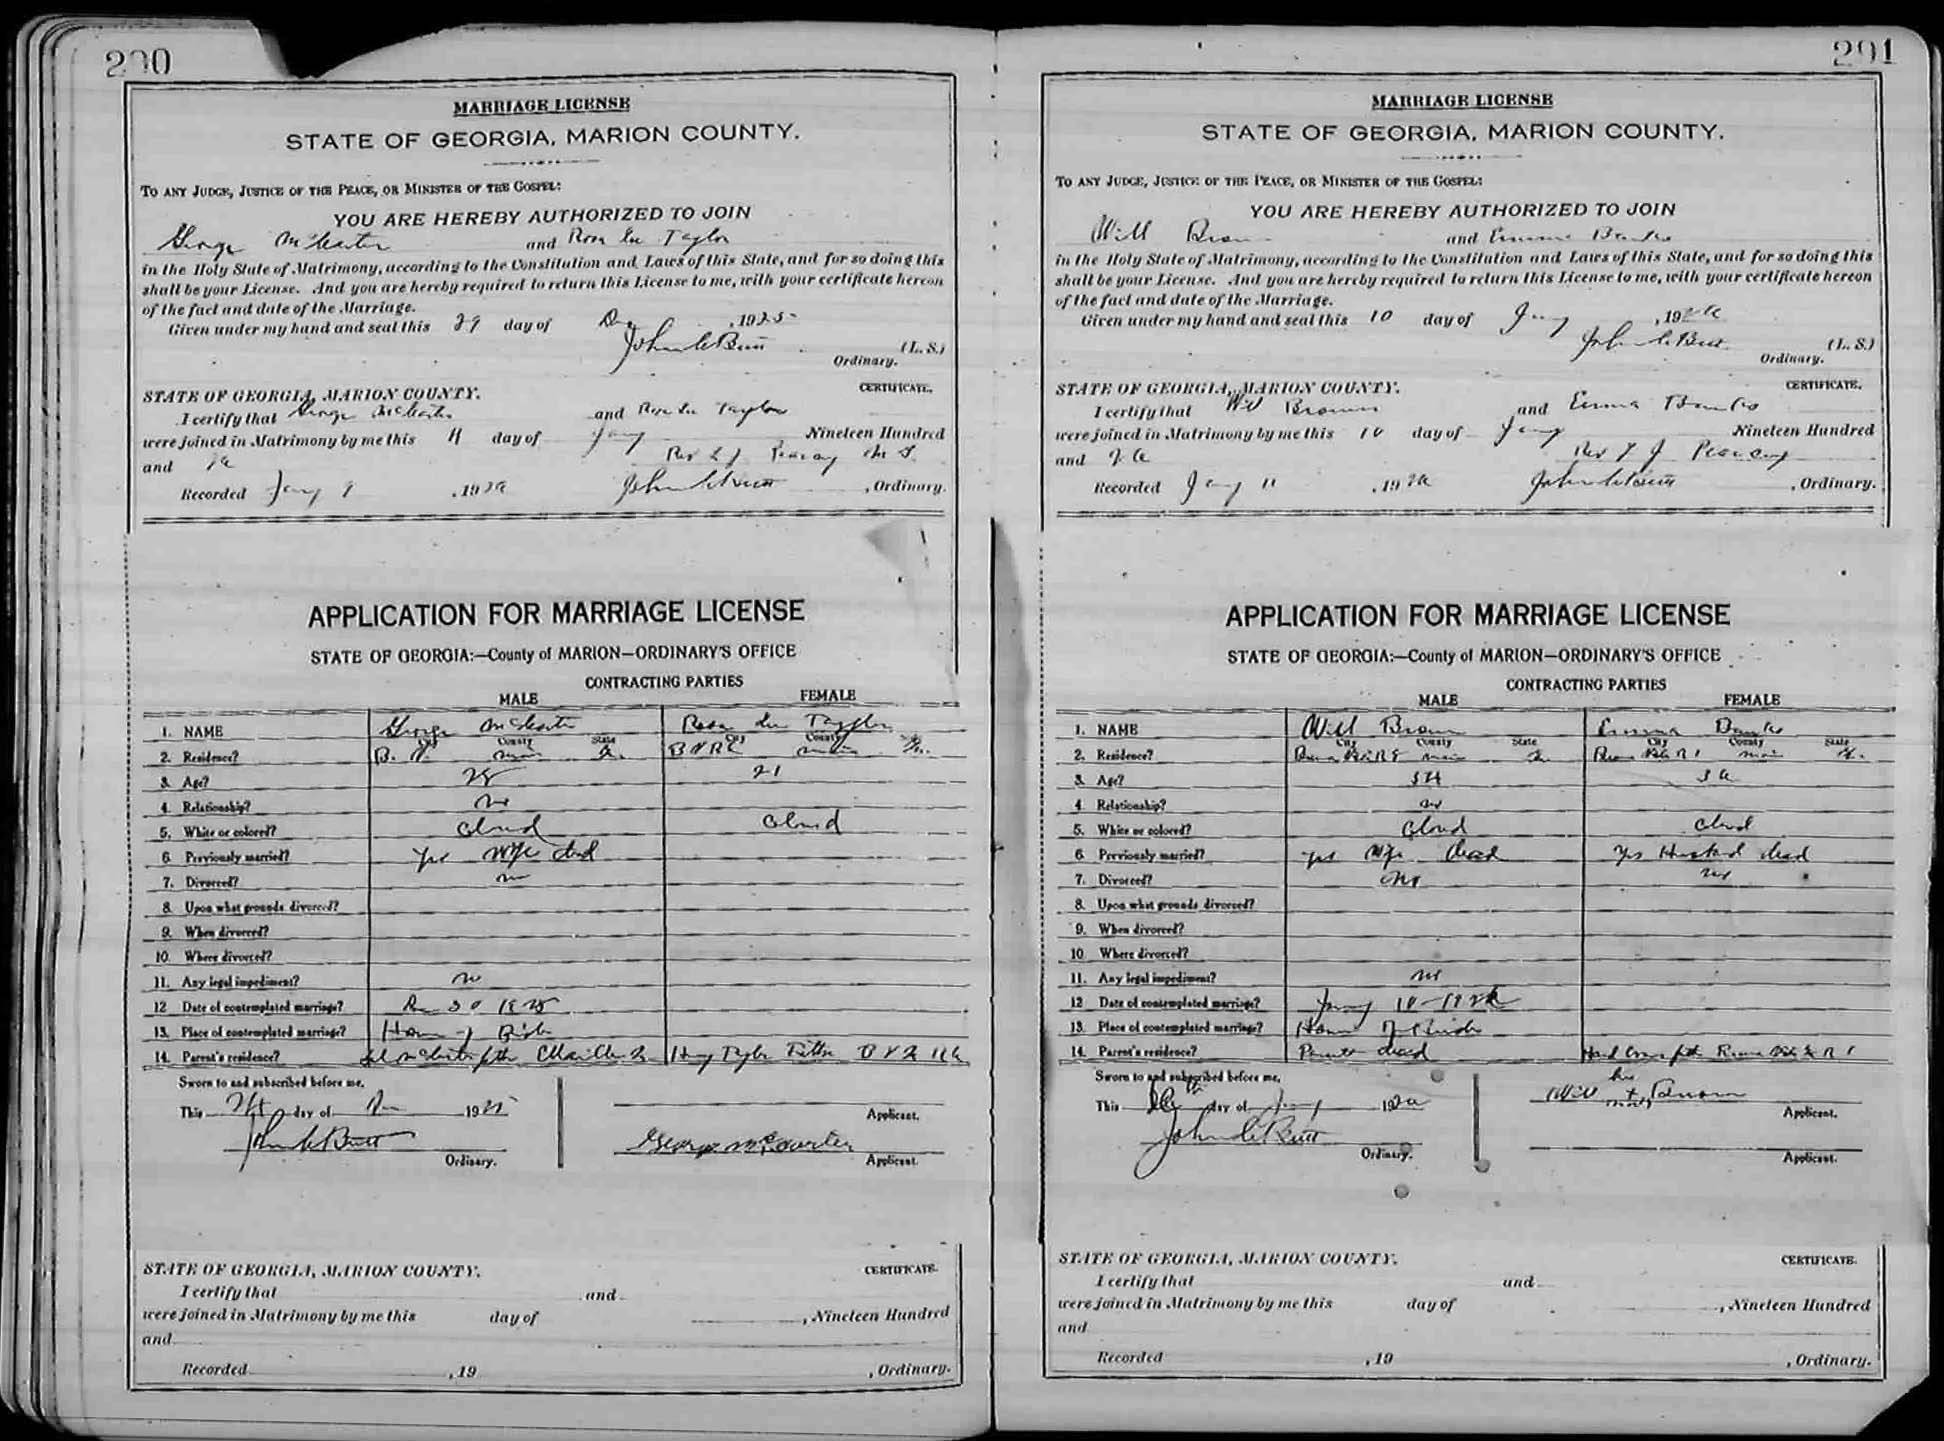 290
MARRIAGE LICENSE
STATE OF GEORGIA, MARION COUNTY.
TO ANY JUDGE, JUSTICE OF THE PEACE, OR MINISTER OF THE GOSPEL:
YOU ARE HEREBY AUTHORIZED TO JOIN
George McCarter and Rosa Lee Taylor
in the Holy State of Matrimony, according to the Constitution and Laws of this State, and for so doing this
shall be your License. And you are hereby required to return this License to me, with your certificate hereon
of the fact and date of the Marriage.
Given under my hand and seal this 29 day of Dec, 1925
John C Butt (L. S.)
Ordinary.
STATE OF GEORGIA, MARION COUNTY. CERTIFICATE.
I certify that George McCarter and Rosa Lee Taylor
were joined in Matrimony by me this day of Jany Nineteen Hundred
and Rev
Recorded Jany 9, 19 John C Butt, Ordinary.
APPLICATION FOR MARRIAGE LICENSE
STATE OF GEORGIA:—County of MARION—ORDINARY'S OFFICE
CONTRACTING PARTIES
MALE FEMALE
1. NAME George McCarter Rosa Lee Taylor
City County State City County State
2. Residence? B. V. Marion Ga. B V R Marion Ga.
3. Age? 28 21
4. Relationship? no
5. White or colored? Colored Colored
6. Previously married? Yes Wife dead
7. Divorced? no
8. Upon what grounds divorced?
9. When divorced?
10. Where divorced?
11. Any legal impediment? no
12. Date of contemplated marriage? Dec 30 1925
13. Place of contemplated marriage? Home of Bride
14. Parent's residence? McCarter father Henry Taylor Father B V
Sworn to and subscribed before me,
This day of Dec 1925
Applicant.
John C Butt George McCarter
Ordinary. Applicant.
STATE OF GEORGIA, MARION COUNTY. CERTIFICATE.
I certify that and
were joined in Matrimony by me this day of , Nineteen Hundred
and
Recorded , 19 , Ordinary.
291
MARRIAGE LICENSE
STATE OF GEORGIA, MARION COUNTY.
TO ANY JUDGE, JUSTICE OF THE PEACE, OR MINISTER OF THE GOSPEL:
YOU ARE HEREBY AUTHORIZED TO JOIN
Will Brown and Emma Banks
in the Holy State of Matrimony, according to the Constitution and Laws of this State, and for so doing this
shall be your License. And you are hereby required to return this License to me, with your certificate hereon
of the fact and date of the Marriage.
Given under my hand and seal this 10 day of Jany, 1926
John C Butt (L. S.)
Ordinary.
STATE OF GEORGIA, MARION COUNTY. CERTIFICATE.
I certify that Will Brown and Emma Banks
were joined in Matrimony by me this 10 day of Jany Nineteen Hundred
and 26 Rev
Recorded Jany 11, 1926 John C Butt, Ordinary.
APPLICATION FOR MARRIAGE LICENSE
STATE OF GEORGIA:—County of MARION—ORDINARY'S OFFICE
CONTRACTING PARTIES
MALE FEMALE
1. NAME Will Brown Emma Banks
City County State City County State
2. Residence? Buena Vista Marion Ga. Buena Vista R 1 Marion Ga.
3. Age?
4. Relationship? no
5. White or colored? Colored Colored
6. Previously married? yes Wife dead Yes Husband dead
7. Divorced? no no
8. Upon what grounds divorced?
9. When divorced?
10. Where divorced?
11. Any legal impediment? no
12. Date of contemplated marriage? Jany 10-1926
13. Place of contemplated marriage? Home of Bride
14. Parent's residence? Parents dead father Buena Vista R 1
Sworn to and subscribed before me,
This day of Jany 1926 Will his x mark Brown
Applicant.
John C Butt
Ordinary. Applicant.
STATE OF GEORGIA, MARION COUNTY. CERTIFICATE.
I certify that and
were joined in Matrimony by me this day of , Nineteen Hundred
and
Recorded , 19 , Ordinary.